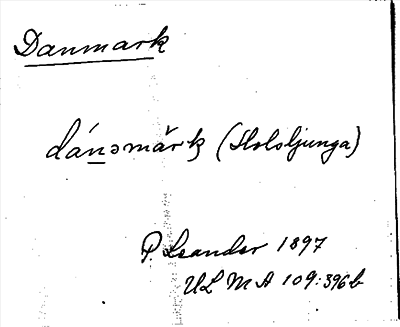 Danmark
dánəmàrk (Holsljunga)
P. Leander 1897
ULMA 109:396b